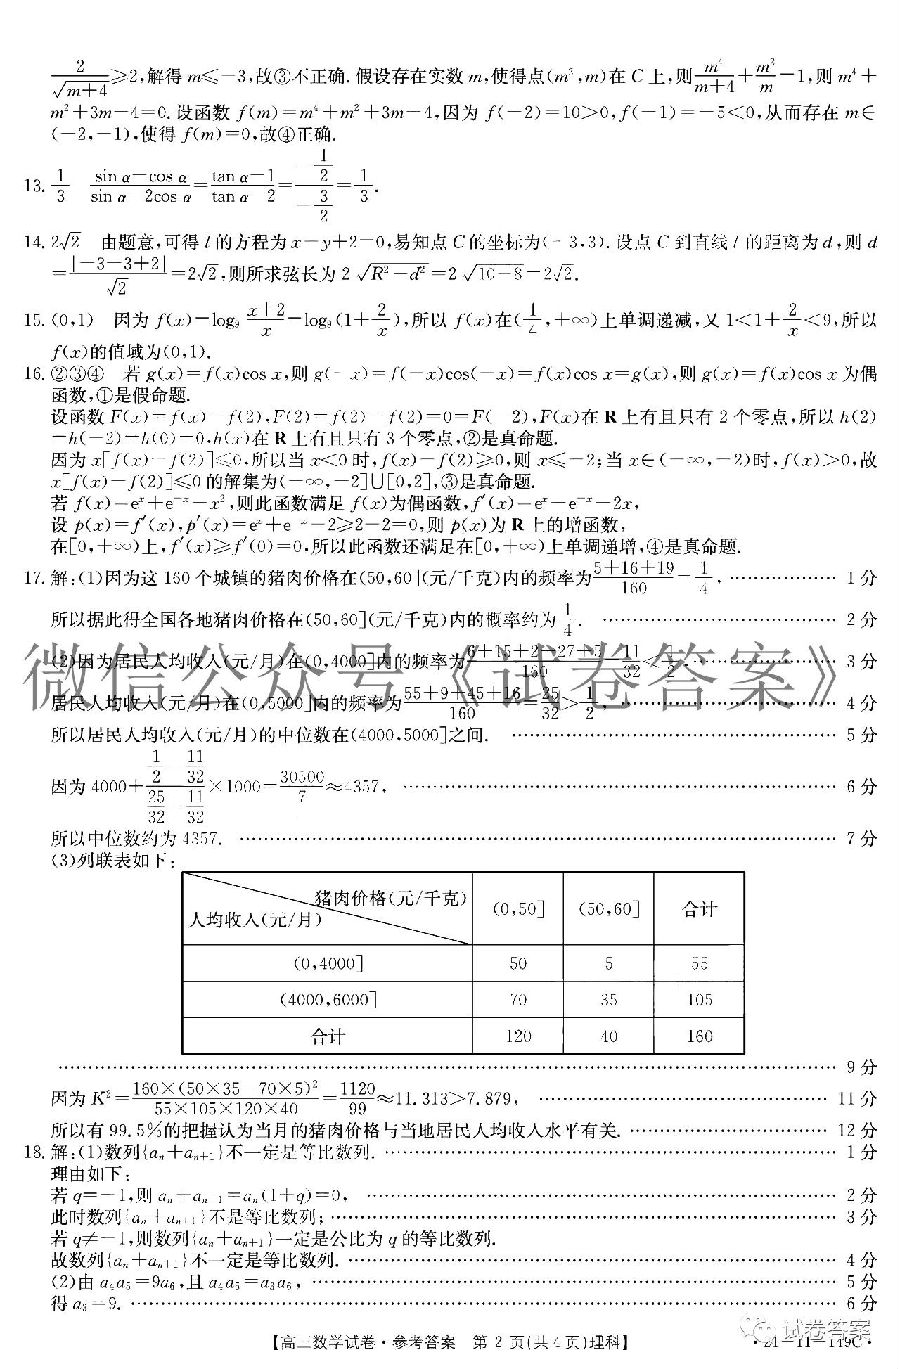 2/√(m+4)≥2,解得 m≤-3,故③不正确. 假设存在实数 m,使得点(m²,m)在 C 上,则 m⁴/(m+4)+m²/m=1,则 m⁴+
m²+3m-4=0. 设函数 f(m)=m⁴+m²+3m-4,因为 f(-2)=10>0,f(-1)=-5<0,从而存在 m∈
(-2,-1),使得 f(m)=0,故④正确.
13. 1/3 (sin α-cos α)/(sin α 2cos α)=(tan α-1)/(tan α 2)=(-1/2)/(-3/2)=1/3.
14. 2√2 由题意,可得 l 的方程为 x-y+2=0,易知点 C 的坐标为(-3,3). 设点 C 到直线 l 的距离为 d,则 d
=|-3-3+2|/√2=2√2,则所求弦长为 2√(R²-d²)=2√(10-8)=2√2.
15. (0,1) 因为 f(x)=log₉ (x+2)/x=log₉(1+2/x),所以 f(x)在(1/4,+∞)上单调递减,又 1<1+2/x<9,所以
f(x)的值域为(0,1).
16. ②③④ 若 g(x)=f(x)cos x,则 g(-x)=f(-x)cos(-x)=f(x)cos x=g(x),则 g(x)=f(x)cos x 为偶
函数,①是假命题.
设函数 F(x)=f(x)-f(2),F(2)=f(2)-f(2)=0=F(-2),F(x)在 R 上有且只有 2 个零点,所以 h(2)
=h(-2)=h(0)=0,h(x)在 R 上有且只有 3 个零点,②是真命题.
因为 x[f(x)-f(2)]≤0,所以当 x<0 时,f(x)-f(2)≥0,则 x≤-2;当 x∈(-∞,-2)时,f(x)>0,故
x[f(x)-f(2)]≤0 的解集为(-∞,-2]∪[0,2],③是真命题.
若 f(x)=eˣ+e⁻ˣ-x²,则此函数满足 f(x)为偶函数,f′(x)=eˣ-e⁻ˣ-2x,
设 p(x)=f′(x),p′(x)=eˣ+e⁻ˣ-2≥2-2=0,则 p(x)为 R 上的增函数,
在[0,+∞)上,f′(x)≥f′(0)=0,所以此函数还满足在[0,+∞)上单调递增,④是真命题.
17. 解:(1)因为这 160 个城镇的猪肉价格在(50,60](元/千克)内的频率为(5+16+19)/160=1/4, …… 1 分
所以据此得全国各地猪肉价格在(50,60](元/千克)内的概率约为 1/4. …… 2 分
(2)因为居民人均收入(元/月)在(0,4000]内的频率为(6+15+2+27+5)/160=11/32<1/2, …… 3 分
居民人均收入(元/月)在(0,5000]内的频率为(55+9+45+16)/160=25/32>1/2, …… 4 分
微信公众号《试卷答案》
所以居民人均收入(元/月)的中位数在(4000,5000]之间. …… 5 分
因为 4000+(1/2-11/32)/(25/32-11/32)×1000=30500/7≈4357, …… 6 分
所以中位数约为 4357. …… 7 分
(3)列联表如下:
猪肉价格(元/千克) 人均收入(元/月) (0,50] (50,60] 合计
(0,4000] 50 5 55
(4000,6000] 70 35 105
合计 120 40 160
…… 9 分
因为 K²=160×(50×35-70×5)²/(55×105×120×40)=1120/99≈11.313>7.879, …… 11 分
所以有 99.5%的把握认为当月的猪肉价格与当地居民人均收入水平有关. …… 12 分
18. 解:(1)数列{aₙ+aₙ₊₁}不一定是等比数列. …… 1 分
理由如下:
若 q=-1,则 aₙ+aₙ₊₁=aₙ(1+q)=0, …… 2 分
此时数列{aₙ+aₙ₊₁}不是等比数列; …… 3 分
若 q≠-1,则数列{aₙ+aₙ₊₁}一定是公比为 q 的等比数列.
故数列{aₙ+aₙ₊₁}不一定是等比数列. …… 4 分
(2)由 a₄a₅=9a₆,且 a₄a₅=a₃a₆, …… 5 分
得 a₃=9. …… 6 分
【高三数学试卷·参考答案 第 2 页(共 4 页)理科】
·21-11-149C·
试卷答案